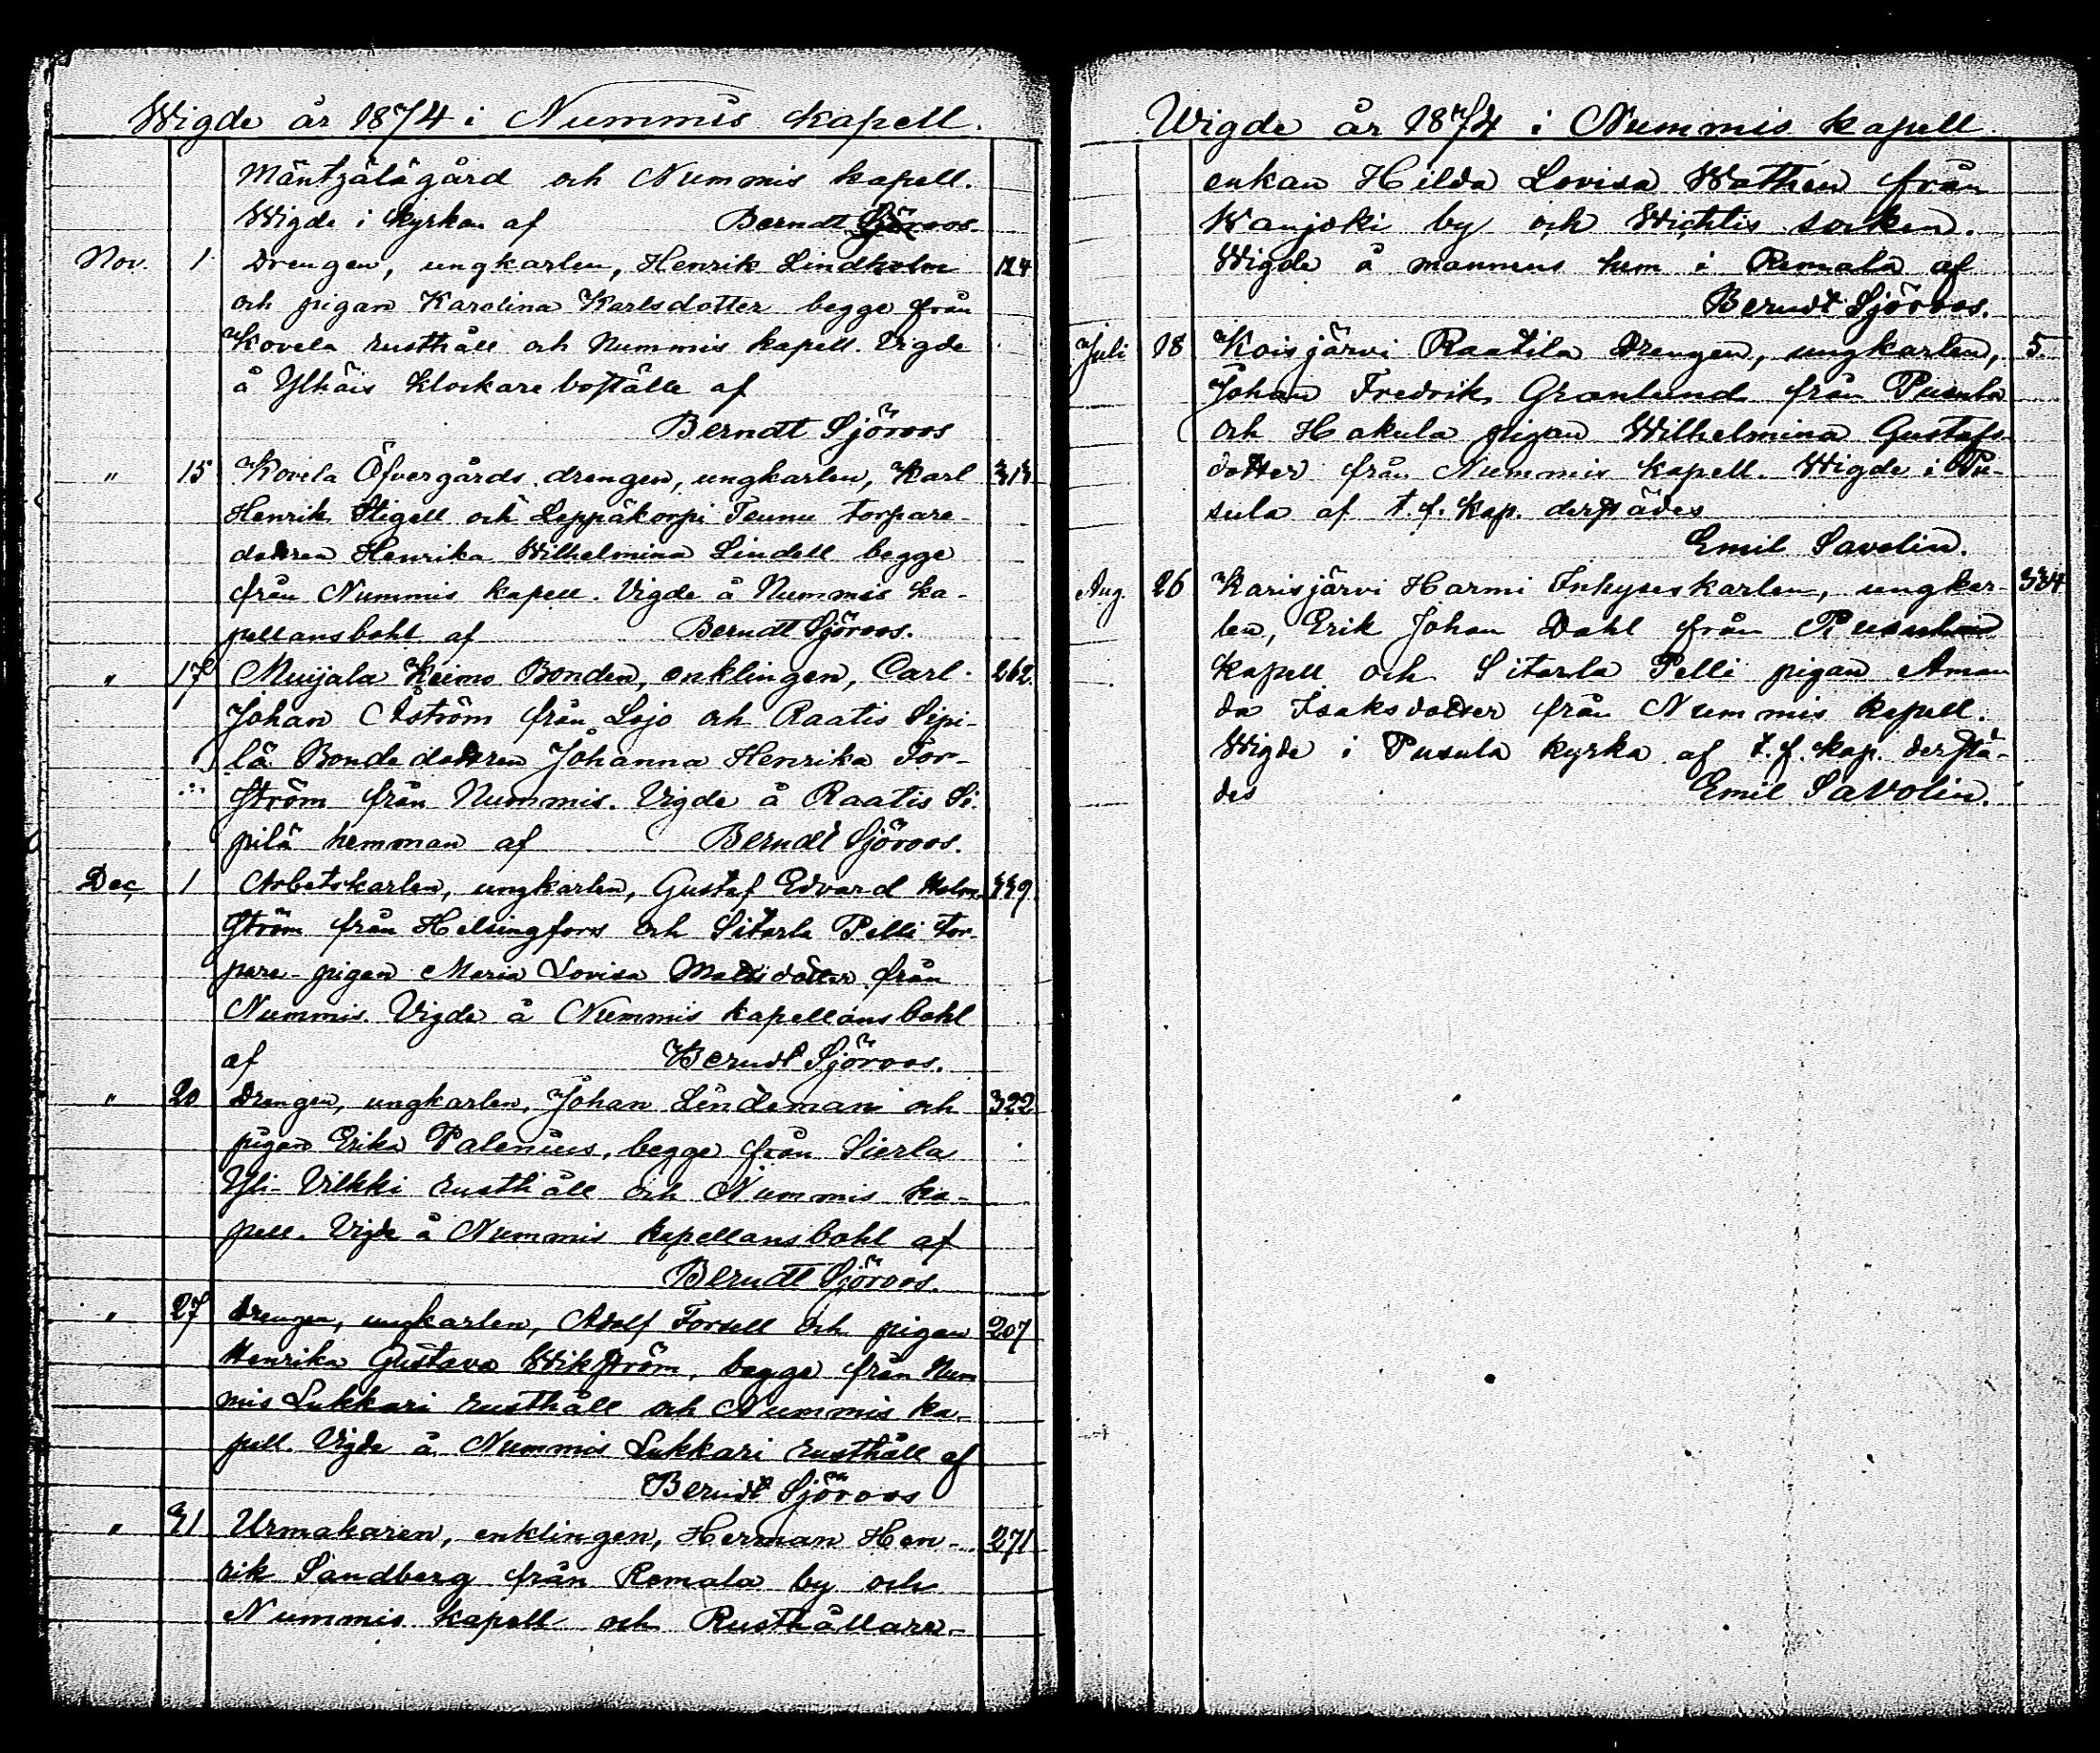 Wigde år 1874 i Nummis kapell.
Mäntzälägård och Nummis kapell.
Wigde i kyrkan af Berndt Sjöroos.
Nov. 1 Drengen, ungkarlen, Henrik Lindholm 124
och pigan Karolina Karlsdotter begge från
Kovela rusthåll och Nummis kapell. Vigde
å Ylhäis klockareboställe af
Berndt Sjöroos
" 15 Kovela Öfvergårds drengen, ungkarlen, Karl 313
Henrik Stigell och Leppäkorpi Teunu torpare-
dottren Henrika Wilhelmina Lindell begge
från Nummis kapell. Vigde å Nummis ka-
pellansbohl af Berndt Sjöroos.
" 17 Muijala Keimo Bonden, enklingen, Carl 262.
Johan Åström från Lojo och Raatis Sipi-
lä Bondedottren Johanna Henrika For-
ström från Nummis. Vigde å Raatis Si-
pilä hemman af Berndt Sjöroos.
Dec. 1 Arbetskarlen, ungkarlen, Gustaf Edvard Holm- 339.
ström från Helsingfors och Sitarla Pelli tor-
pare-pigan Maria Lovisa Mattsdotter från
Nummis. Vigde å Nummis kapellansbohl
af Berndt Sjöroos.
" 20 Drengen, ungkarlen, Johan Lindeman och 322
pigan Erika Palenius, begge från Sierla
Yli-Vilkki rusthåll och Nummis ka-
pell. Vigde å Nummis kapellansbohl af
Berndt Sjöroos.
" 27 Drengen, ungkarlen, Adolf Forsell och pigan 207
Henrika Gustava Wikström, begge från Num
mis Lukkari rusthåll och Nummis ka-
pell. Vigde å Nummis Lukkari rusthåll af
Berndt Sjöroos
" 31 Urmakaren, enklingen, Herman Hen- 271
rik Sandberg från Remala by och
Nummis kapell och Rusthållare-
Wigde år 1874 i Nummis kapell.
enkan Hilda Lovisa Wathén från
Wanjoki by och Wichtis socken.
Wigde å mannens hem i Remala af
Berndt Sjöroos.
Juli 18 Koisjärvi Raatila Drengen, ungkarlen, 5.
Johan Fredrik Granlund från Pusula
och Hakula pigan Wilhelmina Gustafs-
dotter från Nummis kapell. Wigde i Pu-
sula af t.f. kap. derstädes
Emil Savolin.
Aug. 26 Karisjärvi Harmi Inhyseskarlen, ungkar- 334
len, Erik Johan Dahl från Pusula
kapell och Sitarla Pelli pigan Aman
da Isaksdotter från Nummis kapell.
Wigde i Pusula kyrka af t.f. kap. derstä-
des Emil Savolin.